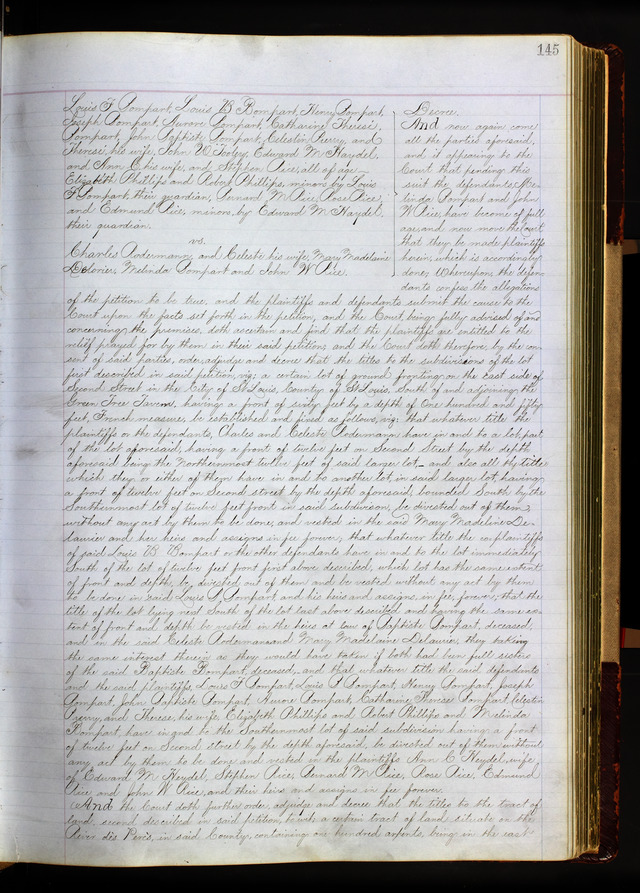 145
Louis F Pompart, Louis B Bompart, Henry Pompart,
Joseph Pompart, Aurore Pompart, Catharine Therese
Pompart, John Baptiste Pompart, Celestin Perry, and
Therese, his wife, John W Tooley, Edward M Haydel,
and Ann C his wife, and Stephen Rice, all of age
Elizabeth Phillips and Robert Phillips, minors by Louis
F Pompart, their guardian, Bernard M Rice, Rose Rice
and Edmund Rice, minors, by Edward M Haydel,
their guardian.
vs.
Charles Rodermann, and Celeste his wife, Mary Madelaine
Delorier, Melinda Pompart and John W Rice.
Decree.
And now again come
all the parties aforesaid,
and it appearing to the
Court that pending this
suit the defendants Me-
linda Pompart and John
W Rice, have become of full
age, and now move the Court
that they be made plaintiffs
herein, which is accordingly
done; Whereupon, the defen-
dants confess the allegations
of the petition to be true, and the plaintiffs and defendants submit the cause to the
Court upon the facts set forth in the petition, and the Court being fully advised of and
concerning the premises, doth ascertain and find that the plaintiffs are entitled to the
relief prayed for by them in their said petition, and the Court doth therefore, by the con-
sent of said parties, order, adjudge and decree that the titles to the subdivisions of the lot
first described in said petition, viz; a certain lot of ground fronting on the east side of
Second Street in the City of St Louis, County of St Louis, South of and adjoining the
Green Tree Tavern, having a front of sixty feet by a depth of One hundred and fifty
feet, French measure, be established and fixed as follows, viz: that whatever title the
plaintiffs or the defendants, Charles and Celeste Rodermann have in and to a lot, part
of the lot aforesaid, having a front of twelve feet on Second Street by the depth
aforesaid being the Northernmost twelve feet of said larger lot and also all the title
which they or either of them have in and to another lot, in said larger lot, having
a front of twelve feet on Second street by the depth aforesaid, bounded South by the
Southernmost lot of twelve feet front in said subdivision, be divested out of them,
without any act by them to be done, and vested in the said Mary Madeline De-
laurier and her heirs and assigns in fee forever; that whatever title the coplaintiffs
of said Louis B Bompart or the other defendants have in and to the lot immediately
South of the lot of twelve feet front first above described, which lot has the same extent
of front and depth, be divested out of them and be vested without any act by them
to be done in said Louis B Pompart and his heirs and assigns, in fee, forever; that the
title of the lot lying next South of the lot last above described and having the same ex-
tent of front and depth be vested in the heirs at law of Baptiste Pompart, deceased,
and in the said Celeste Rodermann and Mary Madelaine Delaurier, they taking
the same interest therein as they would have taken if both had been full sisters
of the said Baptiste Pompart, deceased, and that whatever title the said defendants
and the said plaintiffs, Louis F Pompart, Louis B Pompart, Henry Pompart, Joseph
Pompart, John Baptiste Pompart, Aurore Pompart, Catharine Therese Pompart, Celestin
Perry, and Therese, his wife, Elizabeth Phillips and Robert Phillips and Melinda
Pompart, have in and to the Southernmost lot of said subdivision having a front
of twelve feet on Second street by the depth aforesaid, be divested out of them without
any act by them to be done and vested in the plaintiffs Ann C Heydel, wife
of Edward M Heydel, Stephen Rice, Bernard M Rice, Rose Rice, Edmund
Rice and John W Rice, and their heirs and assigns in fee forever.
And the Court doth further order, adjudge and decree that the titles to the tract of
land, second described in said petition, to wit a certain tract of land, situate on the
River des Peres, in said County, containing one hundred arpents, being in the east